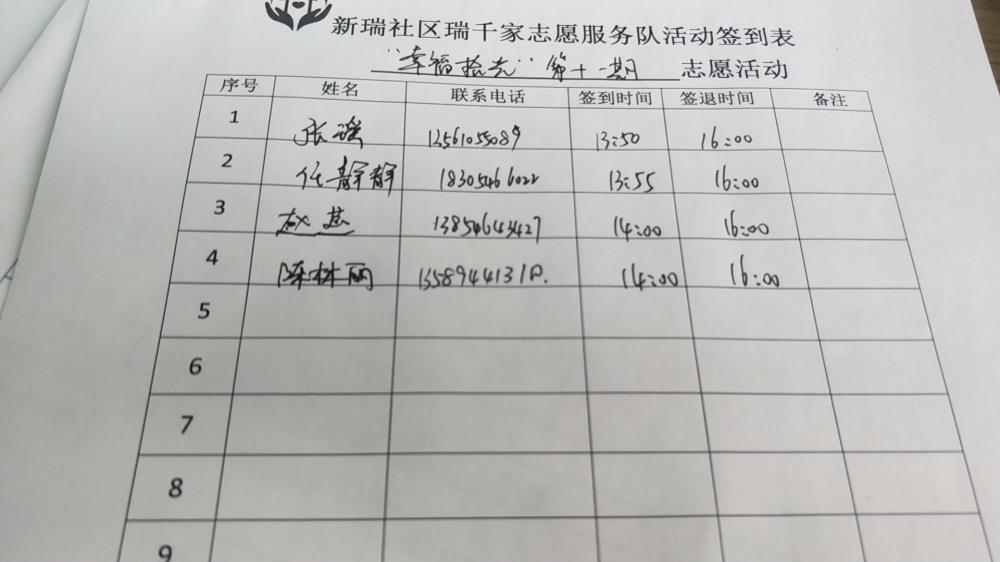 新瑞社区瑞千家志愿服务队活动签到表
"幸福拾光" 第十一期 志愿活动
序号 姓名 联系电话 签到时间 签退时间 备注
1 张瑶 13561055089 13:50 16:00
2 任静静 18305466022 13:55 16:00
3 赵甚 13854643427 14:00 16:00
4 陈林丽 1358944131 14:00 16:00
5
6
7
8
9